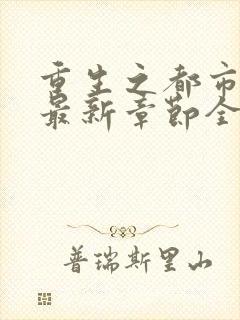 重生之都市
最新章節全
普瑞斯里山